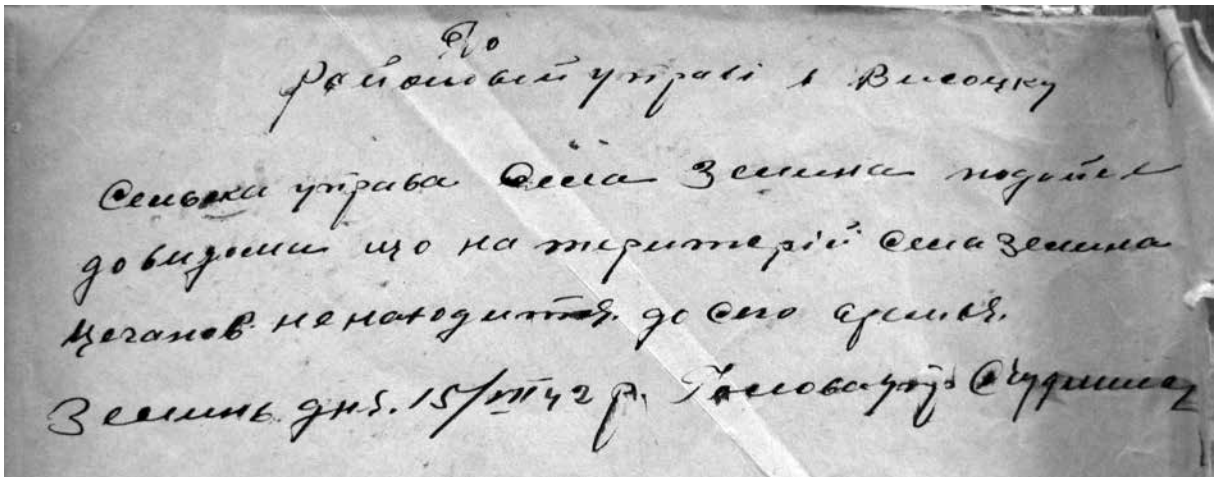 До
Районвый управі в Висоцку
Сельска управа Села Зелина подайе
до видома що на територій Села Зелина
не находитця. до сего времья.
Зелинь дня. 15/VII 42 р. Голова упр.